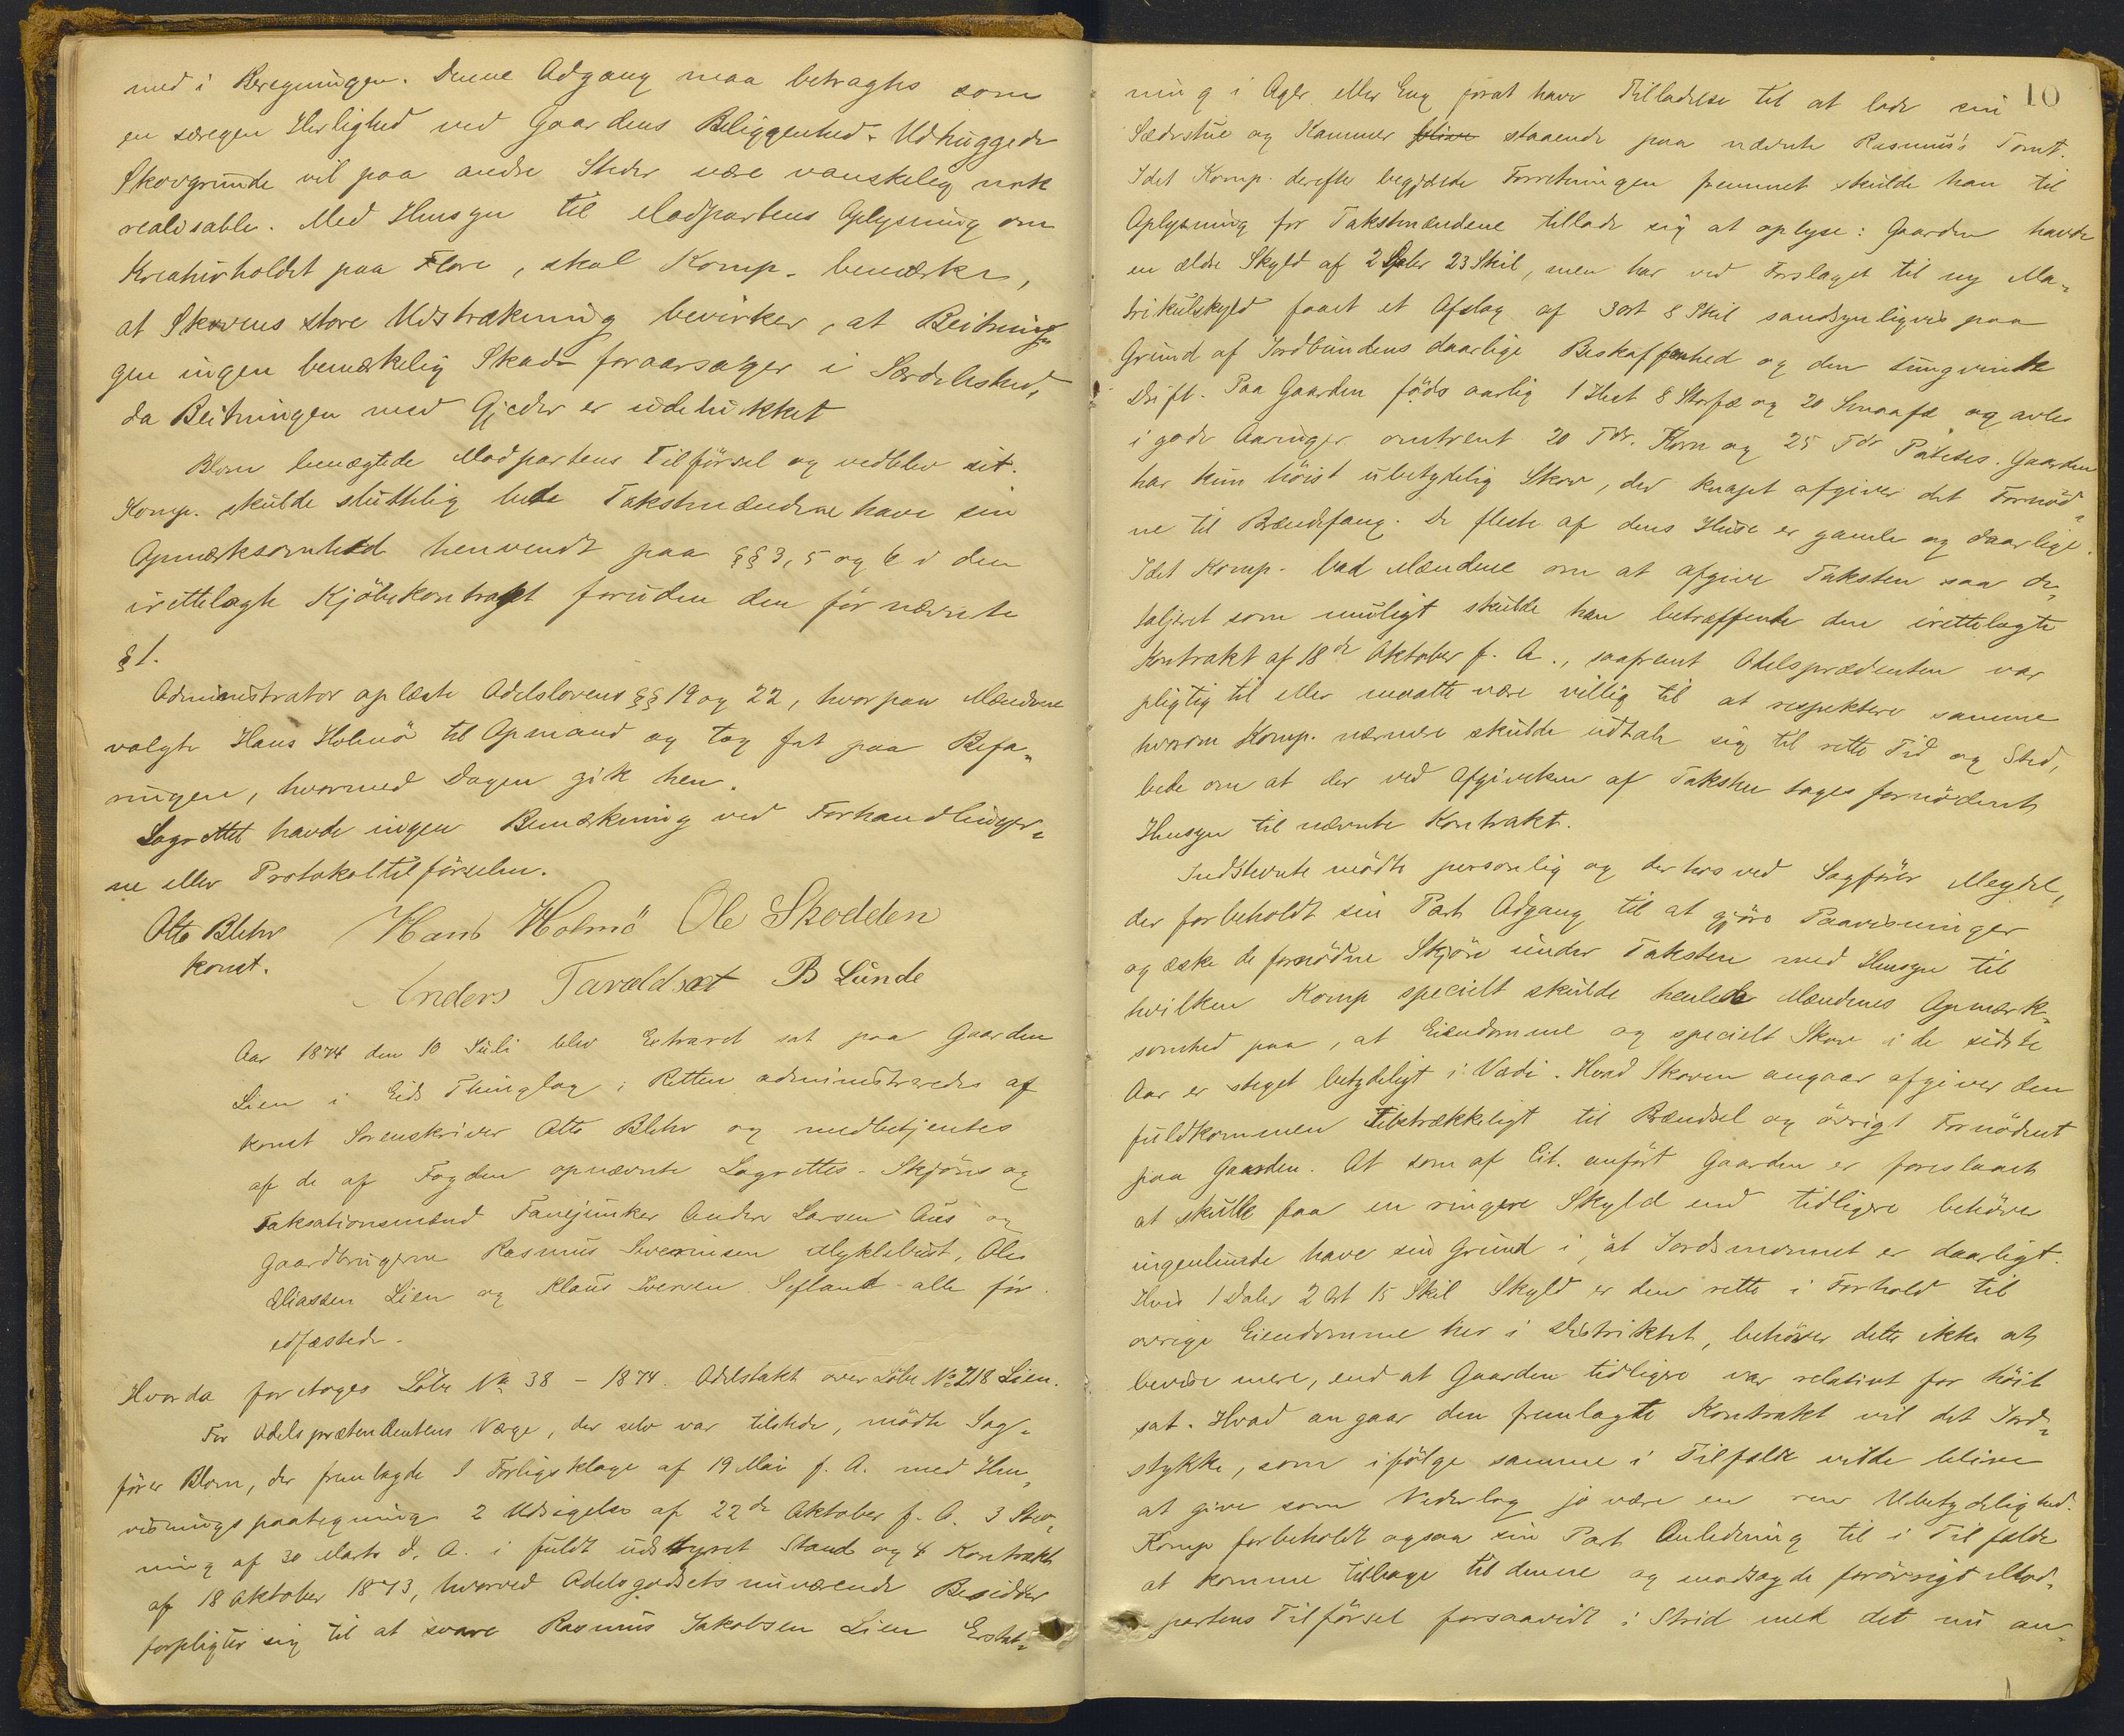 med i Beregningen. Denne Adgang maa betragtes som
en særegen Herlighed ved Gaardens Beliggenhed. Udhuggede
Skovgrunde vil paa andre Steder være vanskelig nok
realisable. Med Hensyn til Modpartens Oplysning om
Kreaturholdet paa Flore, skal Komp. bemærke,
at Skovens store Udstrækning bevirker, at Beitnin-
gen ingen bemærkelig Skade foraarsager i Særdeleshed,
da Beitningen med Gjeder er udelukket
Blom benægtede Modpartens Tilførsel og vedblev sit.
Komp. skulde sluttelig bede Takstmændene have sin
Opmærksomhed henvendt paa §§ 3, 5 og 6 i den
irettelagte Kjøbekontrakt foruden den før nævnte
§ 1.
Administrator oplæste Odelslovens §§ 19 og 22, hvorpaa Mændene
valgte Hans Holmö til Opmand og tog fat paa Befa-
ringen, hvormed Dagen gik hen.
Lagrettet havde ingen Bemærkning ved Forhandlinger-
ne eller Protokoltilførselen.
Otto Blehr Hans Holmö Ole Skodden
konst.
Anders Taraldset B Lunde
Aar 1874 den 10 Juli blev Extraret sat paa Gaarden
Lien i Eids Thinglag; Retten administreredes af
konst Sorenskriver Otto Blehr og medbetjentes
af de af Fogden opnævnte Lagrettes- Skjøns og
Taksationsmænd Fanejunker Anders Larsen Aus og
Gaardbrugerne Rasmus Severinsen Myklebust, Ole
Eliassen Lien og Klaus Iversen Sefland - alle før
edfæstede.
Hvorda foretoges Løbe No 38 - 1874. Odelstakt over Løbe No 218 Lien.
For Odelsprætendentens Værge, der selv var tilstede, mødte Sag-
fører Blom, der fremlagde 1 Forligsklage af 19 Mai f. A. med Hen-
visningspaategning 2 Udsigelse af 22de Oktober f. A. 3 Stev-
ning af 30 Marts d. A. i fuldt udstyret Stand og 4 Kontrakt
af 18 Oktober 1873, hvorved Odelsgodsets nuværende Besidder
forpligter sig til at svare Rasmus Jakobsen Lien Erstat-
10
ning i Ager eller Eng forat have Tilladelse til at lade sin
Sæderstue og Kammer blive staaende paa nævnte Rasmus's Tomt.
Idet Komp. derefter begjærede Forretningen fremmet skulde han til
Oplysning for Takstmændene tillade sig at oplyse: Gaarden havde
en ældre Skyld af 2 Daler 23 Skil, men har ved Forslaget til ny Ma-
trikulskyld faaet et Afslag af 3 ort 8 Skil sandsynligvis paa
Grund af Jordbundens daarlige Beskaffenhed og den tungvindte
Drift. Paa Gaarden fødes aarlig 1 Hest 8 Storfæ og 20 Smaafæ og avles
i gode Aaringer omtrent 20 Tdr. Korn og 25 Tdr Potetes. Gaarden
har kun høist ubetydelig Skov, der knapt afgiver det Fornød-
ne til Brændefang. De fleste af dens Huse er gamle og daarlige.
Idet Komp. bad Mændene om at afgive Taksten saa de-
taljeret som muligt skulde han betræffende den irettelagte
Kontrakt af 18de Oktober f. A., saafremt Odelsprædenten var
pligtig til eller maatte være villig til at respektere samme
hvorom Komp. nærmere skulde udtale sig til rette Tid og Sted,
bede om at der ved Afgivelsen af Taksten tages fornødent
Hensyn til nævnte Kontrakt.
Indstevnte mødte personlig og derhos ved Sagfører Meydel,
der forbeholdt sin Part Adgang til at gjøre Paavisninger
og æske de fornødne Skjøn under Taksten med Hensyn til
hvilken Komp specielt skulde henlede Mændenes Opmærk-
somhed paa, at Eiendomme og specielt Skov i de sidste
Aar er steget betydeligt i Værdi. Hvad Skoven angaar afgiver den
fuldkommen Tilstrækkeligt til Brændsel og øvrigt Fornødent
paa Gaarden. At som af Cit. anført Gaarden er foreslaaet
at skulle faa en ringere Skyld end tidligere behøver
ingenlunde have sin Grund i, at Jordsmonnet er daarligt.
Hvis 1 Daler 2 Ort 15 Skil Skyld er den rette i Forhold til
øvrige Eiendomme her i Distriktet, behøver dette ikke at
bevise mere, end at Gaarden tidligere var relativt for høit
sat. Hvad angaar den fremlagte Kontrakt vil det Jord-
stykke, som ifølge samme i Tilfælde vilde blive
at give som Vederlag jo være en ren Ubetydelighed.
Komp forbeholdt ogsaa sin Part Anledning til i Tilfælde
at komme tilbage til denne og modsagde forøvrigt Mod-
partens Tilførsel forsaavidt i Strid med det nu an-